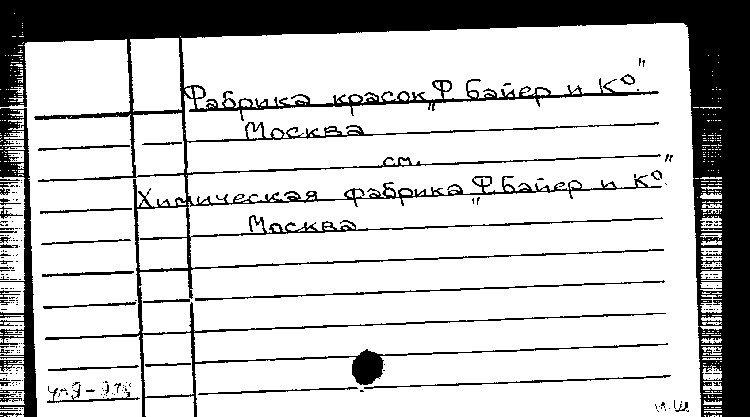 Фабрика красок „Ф Байер и Ко."
Москва
см.
Химическая фабрика „Ф. Байер и Ко."
Москва
И.Ш